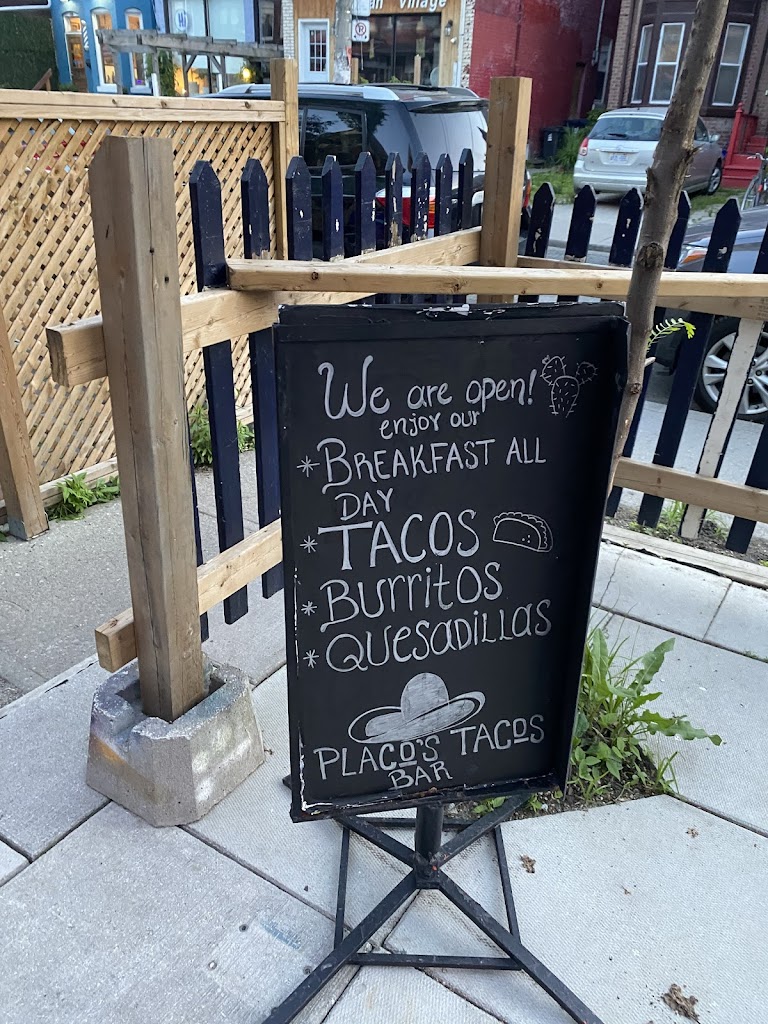 an Village
We are open!
enjoy our
* BREAKFAST ALL
DAY
* TACOS
* Burritos
* QUESADILLAS
PLACO'S TACOS
BAR